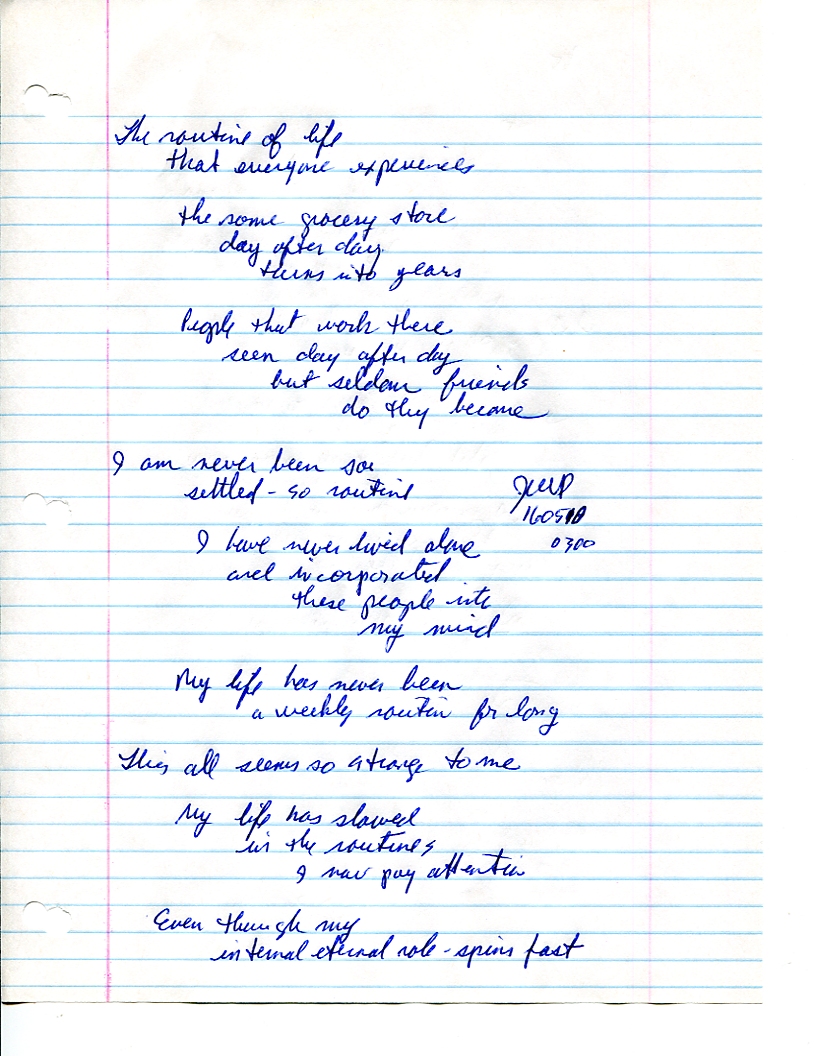 The routine of life
that everyone experiences
the same grocery store
day after day
turns into years
People that work there
seen day after day
but seldom friends
do they become
I am never been so
settled - so routine
160510
0300
I have never lived alone
and incorporated
these people into
my mind
My life has never been
a weekly routin for long
This all seems so strange to me
My life has slowed
in the routines
I now pay attention
Even though my
internal eternal role - spins fast